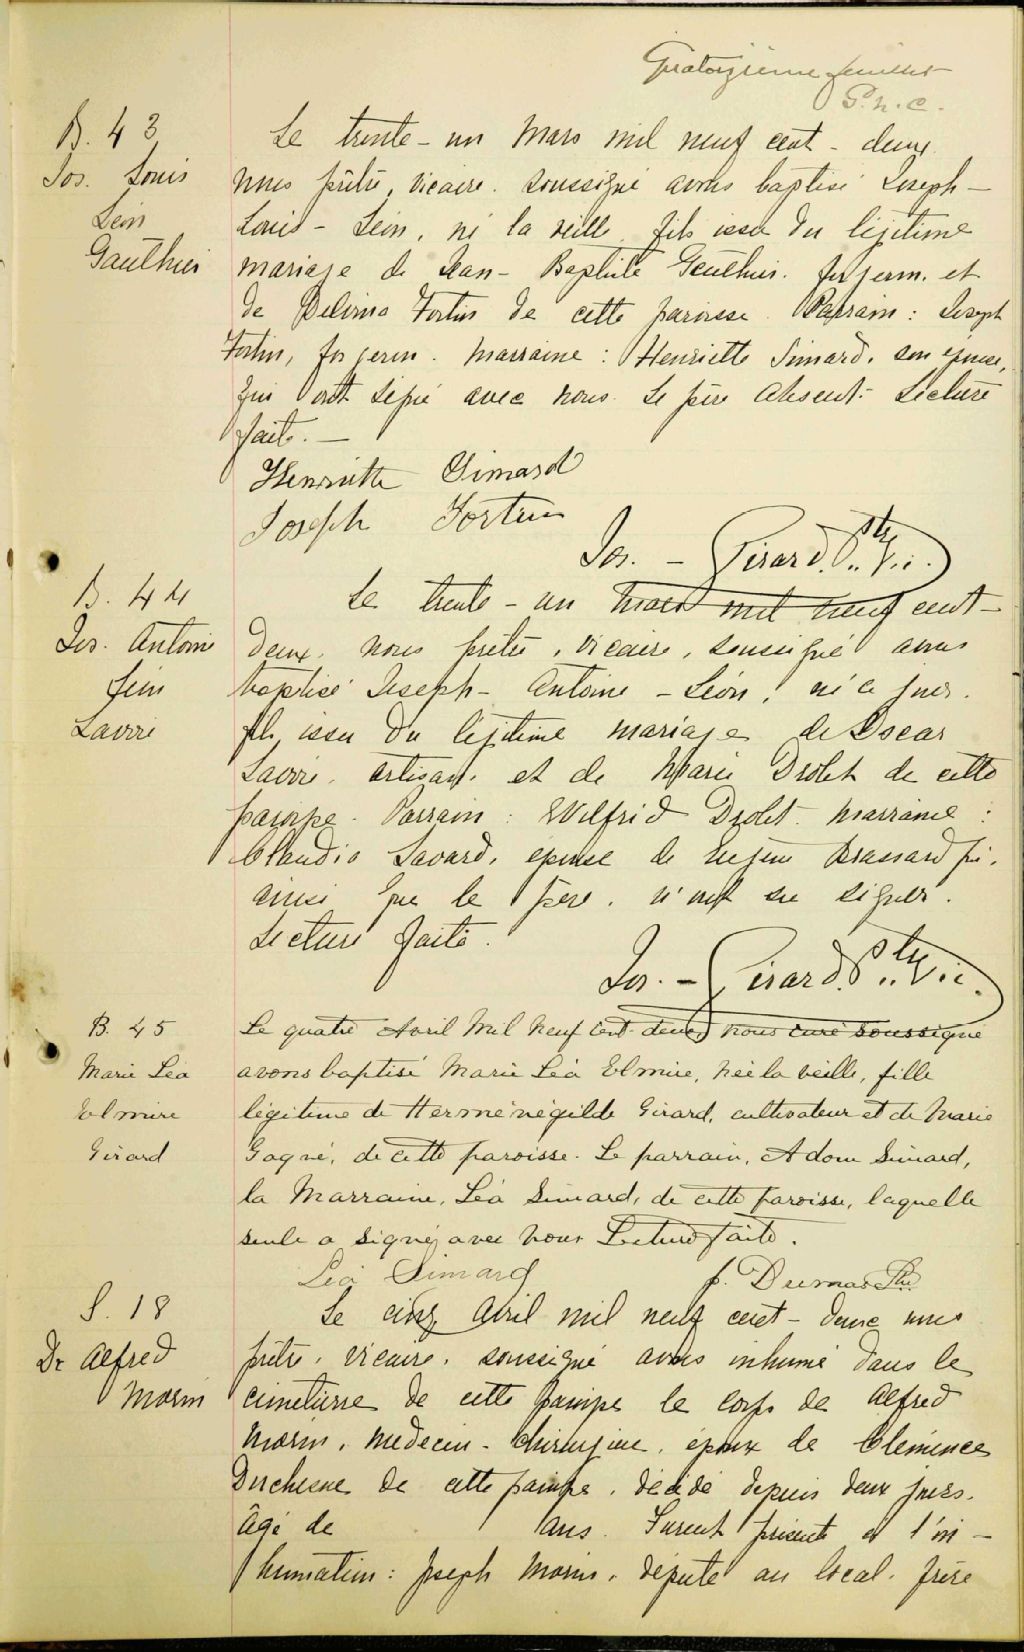 Quatorzième feuillet
P. n. c.
B. 43
Jos. Louis
Léon
Gauthier
Le trente-un Mars mil neuf cent-deux
nous prêtre, vicaire soussigné avons baptisé Joseph-
Louis-Léon, né la veille, fils issu du légitime
mariage de Jean-Baptiste Gauthier forgeron et
de Delvina Fortin de cette paroisse. Parrain: Joseph
Fortin, forgeron. Marraine: Henriette Simard, son épouse,
qui ont signé avec nous. Le père absent. Lecture
faite. —
Henriette Simard
Joseph Fortin
Jos. - Girard. Ptre Vic.
B. 44
Jos. Antoine
Léon
Savoie
Le trente-un mars mil neuf cent-
deux, nous prêtre, vicaire, soussigné avons
baptisé Joseph-Antoine-Léon, né ce jour,
fils issu du légitime mariage de Oscar
Savoie, artisan, et de Marie Drolet de cette
paroisse. Parrain: Wilfrid Drolet. Marraine:
Claudia Savard, épouse de Eugène Brassard qui,
ainsi que le père, n'ont su signer.
Lecture faite.
Jos. - Girard. Ptre Vic.
B. 45
Marie Léa
Elmire
Girard
Le quatre Avril Mil Neuf Cent deux, nous curé soussigné
avons baptisé Marie Léa Elmire, née la veille, fille
légitime de Herménégilde Girard, cultivateur et de Marie
Gagné, de cette paroisse. Le parrain, Adom Simard,
la Marraine, Léa Simard, de cette paroisse, laquelle
seule a signé avec nous Lecture faite.
Léa Simard
J. Dumas Ptre
S. 18
Dr Alfred
Morin
Le cinq Avril mil neuf cent-deux nous
prêtre, vicaire, soussigné avons inhumé dans le
cimetière de cette paroisse le corps de Alfred
Morin, médecin-chirurgien, époux de Clémence
Duchesne de cette paroisse, décédé depuis deux jours,
âgé de ans. Furent présents à l'in-
humation: Joseph Morin, député au local, frère